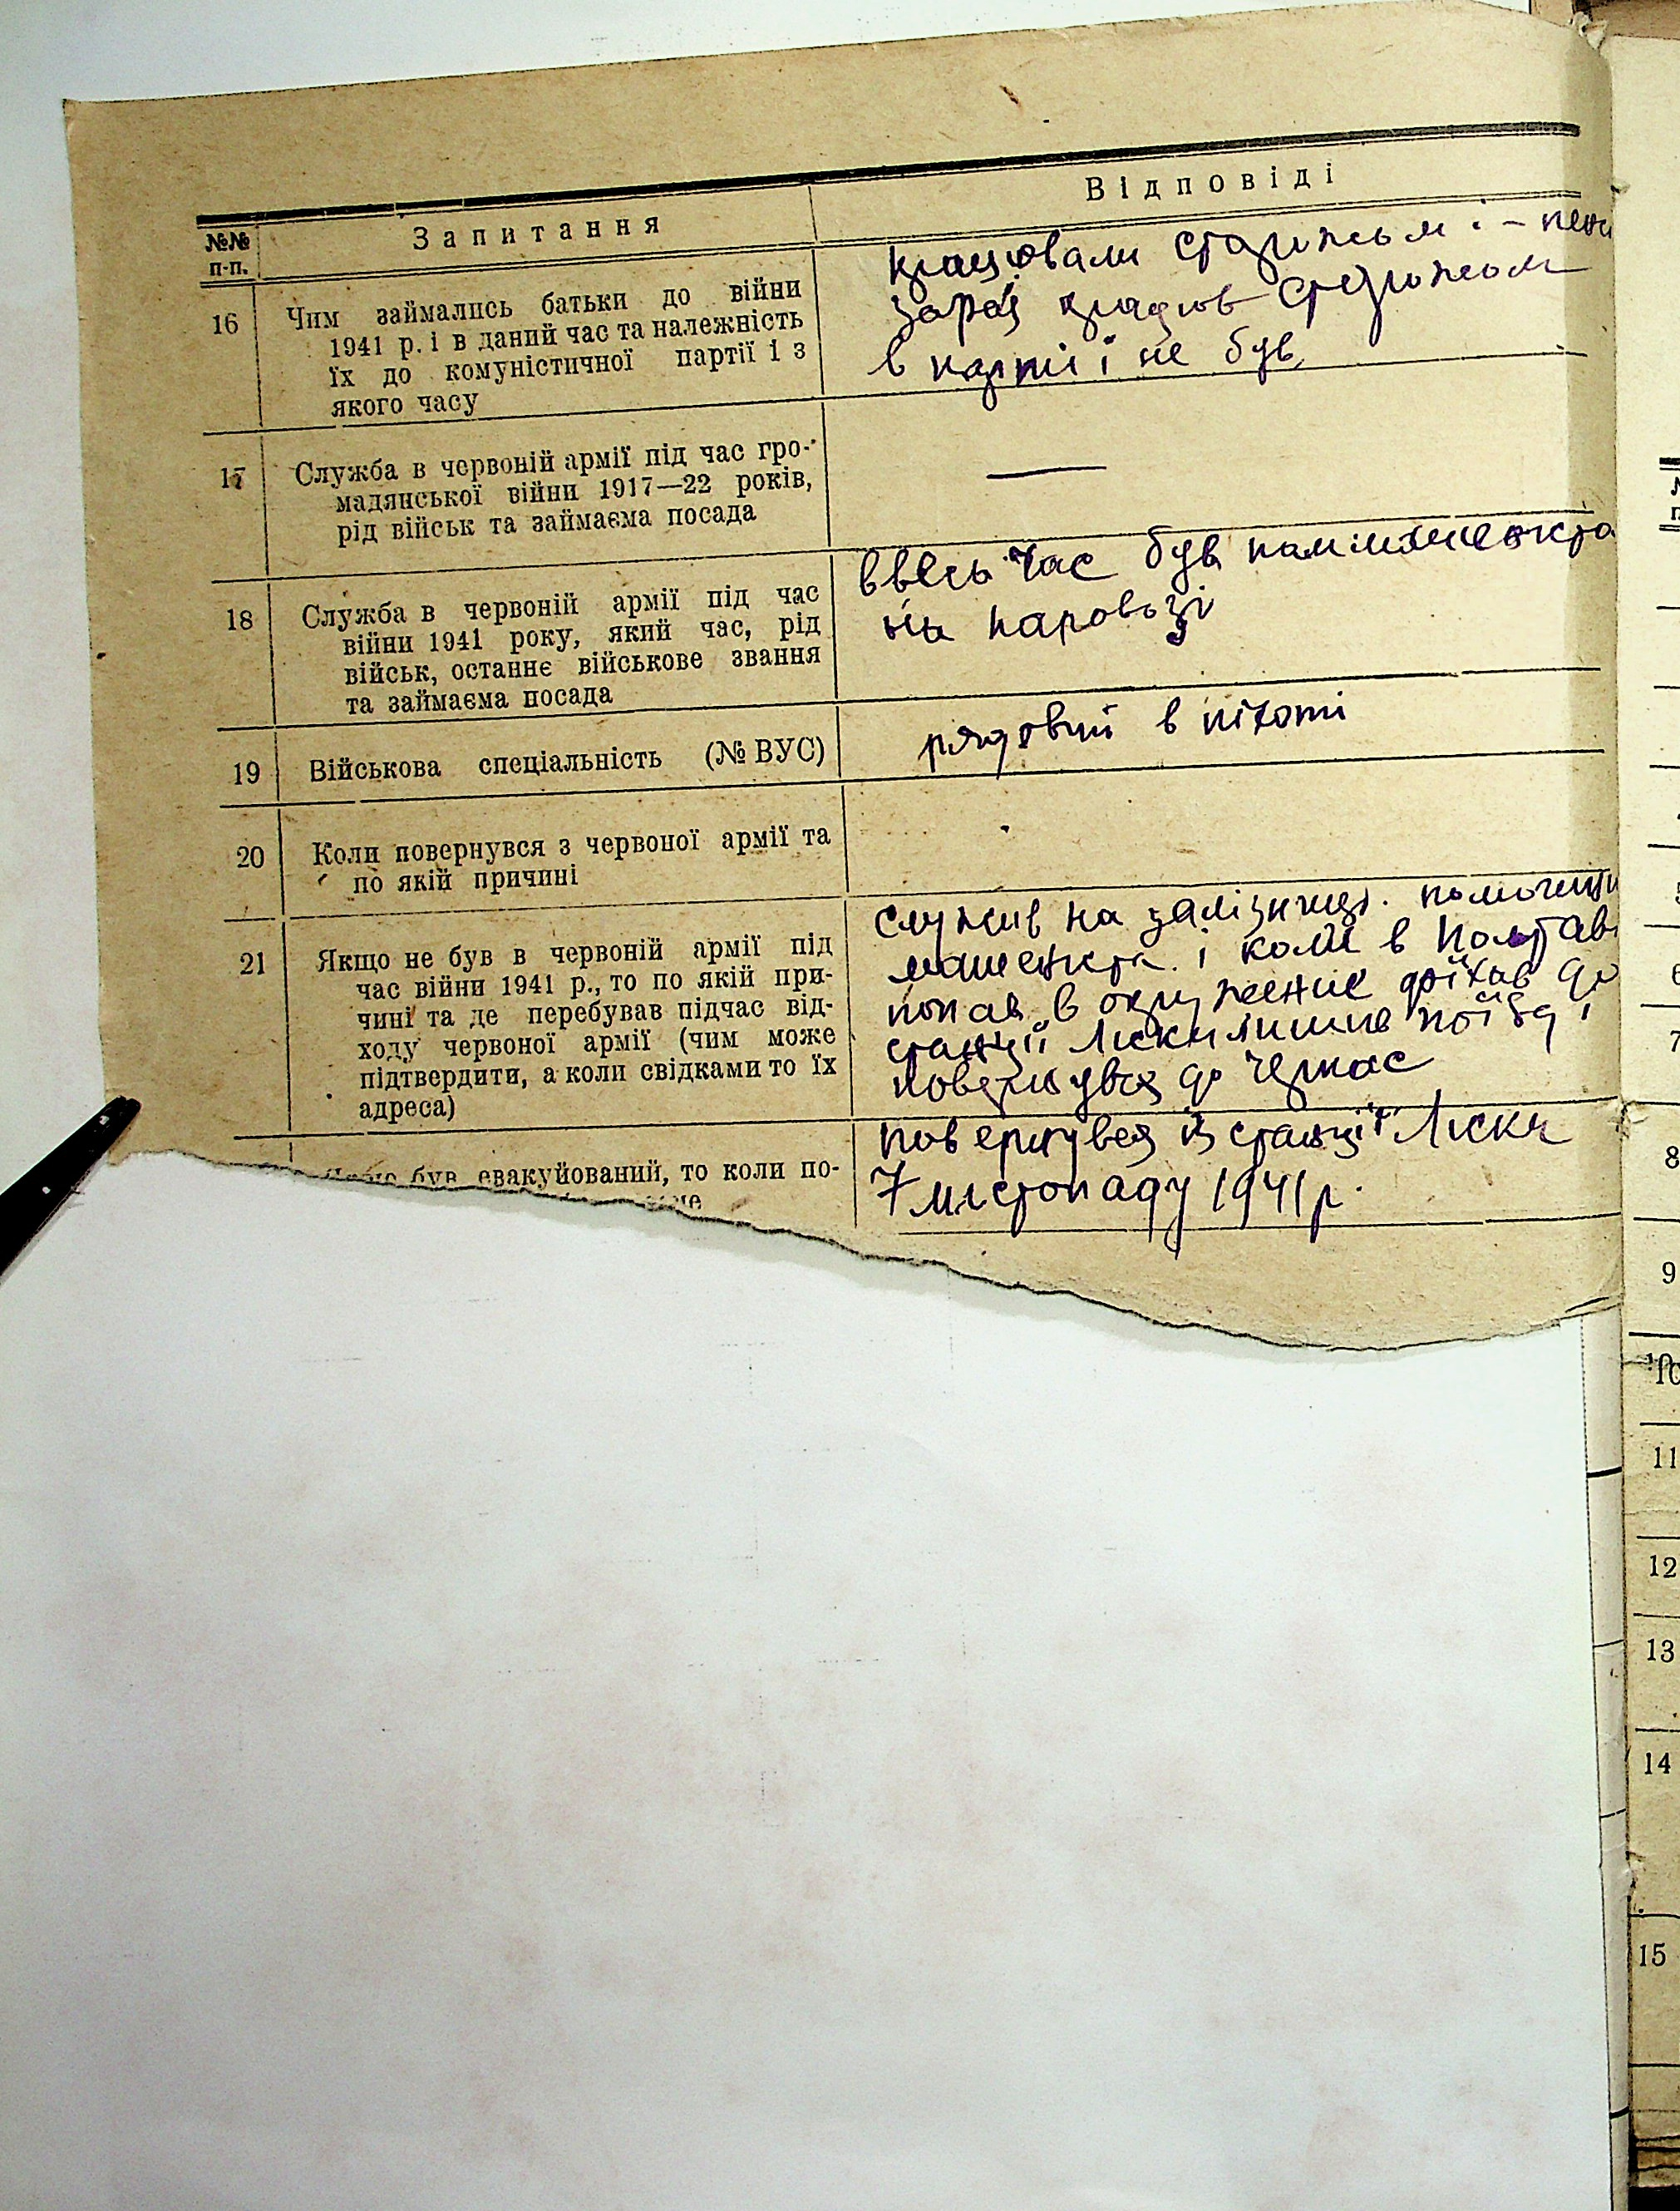 Відповіді
№№ п-п.
Запитання
16
Чим займались батьки до війни
1941 р. і в даний час та належність
їх до комуністичної партії і з
якого часу
працювали сторожем і -
зараз працюв сторожем
в партії не був
17
Служба в червоній армії під час гро-
мадянської війни 1917—22 років,
рід військ та займаєма посада
—
18
Служба в червоній армії під час
війни 1941 року, який час, рід
військ, останнє військове звання
та займаєма посада
ввесь час був
на паровозі
19
Військова спеціальність (№ ВУС)
рядовий в піхоті
20
Коли повернувся з червоної армії та
по якій причині
21
Якщо не був в червоній армії під
час війни 1941 р., то по якій при-
чині та де перебував підчас від-
ходу червоної армії (чим може
підтвердити, а коли свідками то їх
адреса)
служив на залізниці.
машениста і коли в Полтаві
попав в окружение доїхав до
станції Лиски лишив поїзд і
повернувся до Черкас
був евакуйований, то коли по-
повернувся із станції Лиски
7 листопаду 1941 р.
8
9
10
11
12
13
14
15